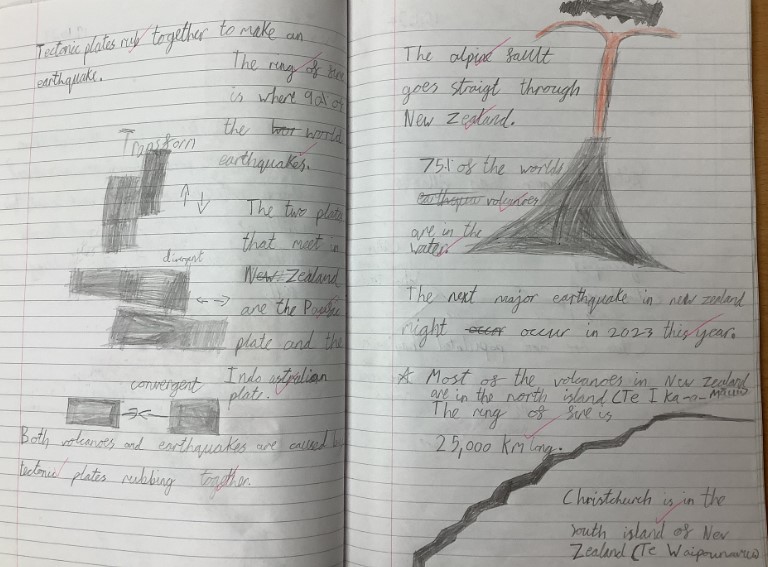 Tectonic plates rub together to make an
earthquake.
The ring of fire
is where 90% of
the world
earthquakes.
Transforn
The two plate
that meet in
New Zealand
divergent
are the
plate and the
convergent
Indo astralian
plate.
Both volcanoes and earthquakes are caused
tectonic plates rubbing together.
The alpine fault
goes straigt through
New Zealand.
75% of the worlds
volcanoes
are in the
water.
The next major earthquake in new zealand
might occur in 2023 this year.
* Most of the volcanoes in New Zealand
are in the north island (Te Ika-a-Maui)
The ring of fire is
25,000 Km long.
Christchurch is in the
south island of New
Zealand (Te